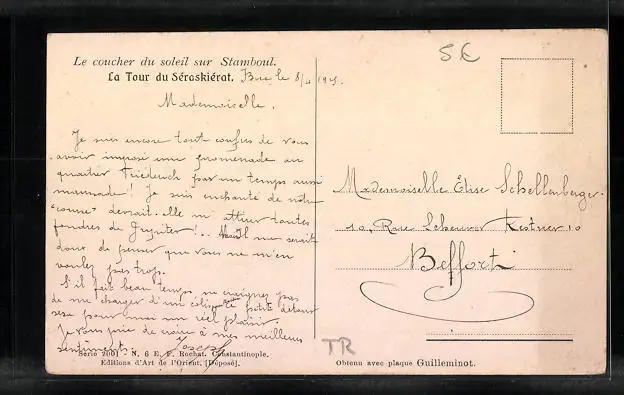 Le coucher du soleil sur Stamboul.
La Tour du Séraskiérat.
Mademoiselle.
Je suis encore tout confus de vous
avoir imposé une promenade au
quartier par un temps aussi
maussade! Je suis enchanté de notre
"course" m'attirer toutes
foudres de Jupiter!.. me serait
doux de penser que vous ne m'en
voulez pas trop.
S'il fait beau temps ne craignez pas
de me charger d'un petit détour
sera pour moi un réel plaisir.
Je vous prie de croire à mes meilleurs
sentiments. Joseph
Série 2001 - N. 6 E. F. Rochat, Constantinople.
Editions d'Art de l'Orient, [Déposé].
5€
Mademoiselle Élise Schellenberger.
10, Rue Scheurer Kestner 10
Belfort
TR
Obtenu avec plaque Guilleminot.